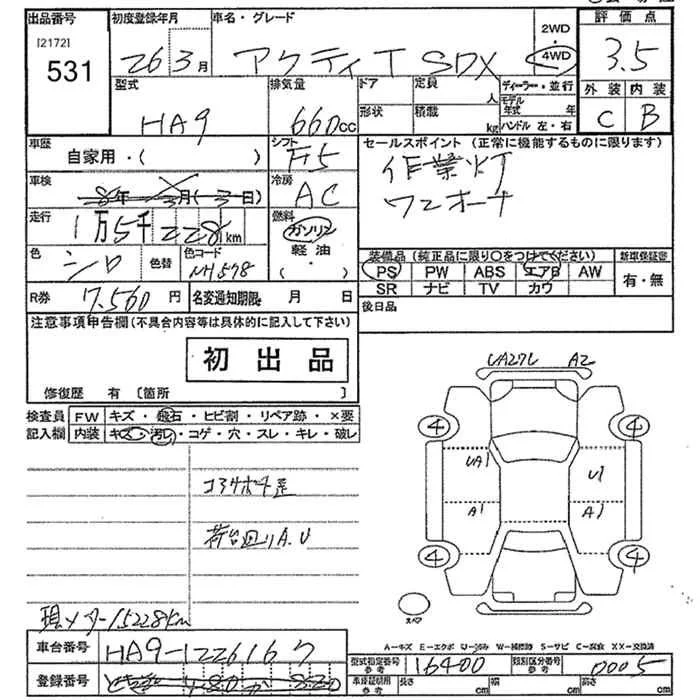 出品番号 初度登録年月 車名・グレード 2WD 評価点
[2172] 531 26年3月 アクティT SDX 4WD 3.5
型式 排気量 ドア 定員 人 ディーラー・並行 外装 内装
HA9 660cc 形状 積載 kg モデル年式 年 ハンドル 左・右 C B
車歴 自家用・( ) シフト F5 セールスポイント (正常に機能するものに限ります)
車検 8年 3月(3日) 冷房 AC 作業灯
走行 1万5千228km 燃料 ガソリン 軽油・( ) ワンオーナ
色 シロ 色替 色コード NH578
装備品 (純正品に限り○をつけてください) 新車保証書
PS PW ABS エアB AW 有・無
SR ナビ TV カワ
R券 17,560円 名変通知期限 月 日 後日品
注意事項申告欄(不具合内容等は具体的に記入して下さい)
初出品
修復歴 有 〔箇所 〕
検査員 FW キズ・飛石・ヒビ割・リペア跡・×要
記入欄 内装 キズ・汚れ・コゲ・穴・スレ・キレ・破レ
UA27L A2
4 4
UA1 U1
A1 A1
4 4
荷台回りA.U
スペア
現メーター15228km
A-キズ E-エクボ U-凹み W-補修跡 S-サビ C-腐食 XX-交換済
車台番号 HA9-1226167
型式指定番号 参考 16400 類別区分番号 参考 0005
登録番号
車庫証明用 参考 長さ cm 幅 cm 高さ cm